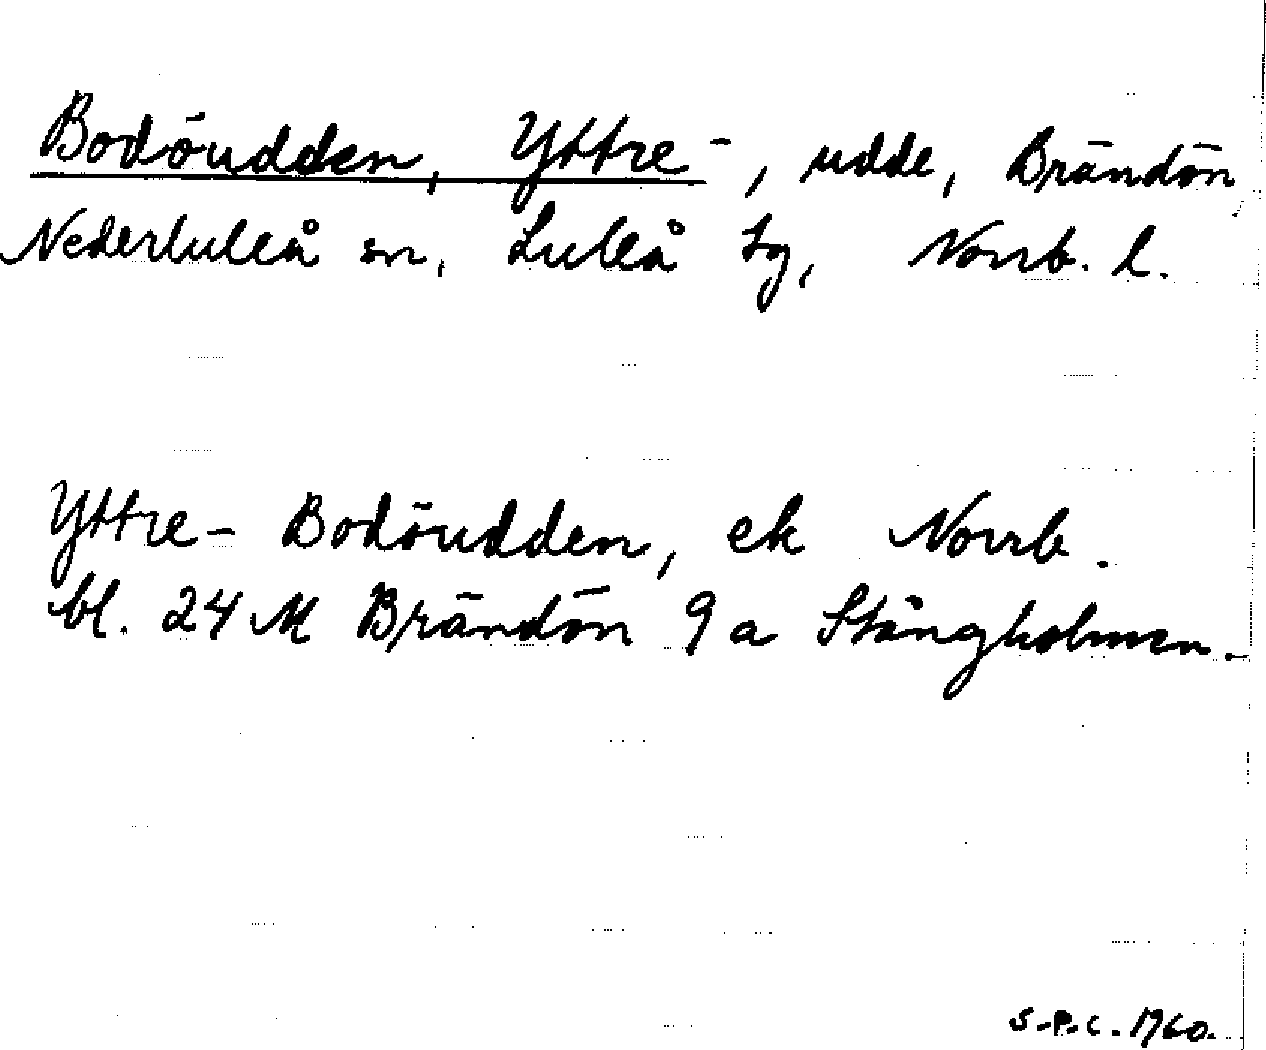 Bodöudden, Yttre-, udde, Brändön,
Nederluleå sn, Luleå tg, Norrb. l.
Yttre-Bodöudden, ek Norrb.
bl. 24 M Brändön 9 a Stångholmen.
S.P.C. 1960.